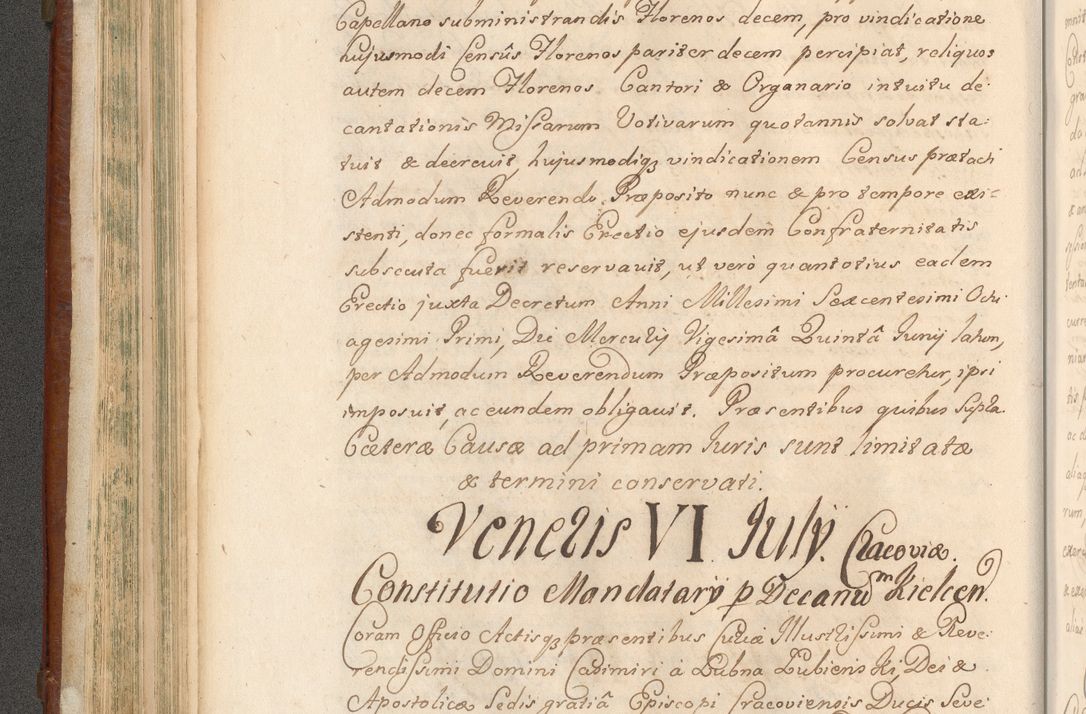 Capellano subministrandis Florenos decem, pro vindicatione
hujusmodi Censûs Florenos pariter decem percipiat, reliquos
autem decem Florenos Cantori & Organario intuitu de-
cantationis Missarum Votivarum quotannis solvat sta-
tuit & decrevit, hujusmodiq₃ vindicationem Census prætacti
Admodum Reverendo Præposito nunc & pro tempore exi-
stenti, donec formalis Erectio ejusdem Confraternitatis
subsecuta fuerit reservavit, ut verò quantotius eadem
Erectio juxta Decretum Anni Millesimi Sexcentesimi Octu-
agesimi Primi, Die Mercurij Vigesimâ Quintâ Junij latum,
per Admodum Reverendum Præpositum procuretur, ipsi
imposuit, ac eundem obligavit. Præsentibus quibus Supta.
Cæteræ Causæ ad primam Iuris sunt limitatæ
& termini conservati.
Veneris VI July. Cracoviæ.
Constitutio Mandatarij p Decanũ Kielcen.
Coram Officio Actisq₃ præsentibus Curiæ Illustrissimi & Reve-
rendissimi Domini Casimiri à Lubna Lubienski, Dei &
Apostolicæ Sedis gratiâ Episcopi Cracoviensis Ducis Seve-